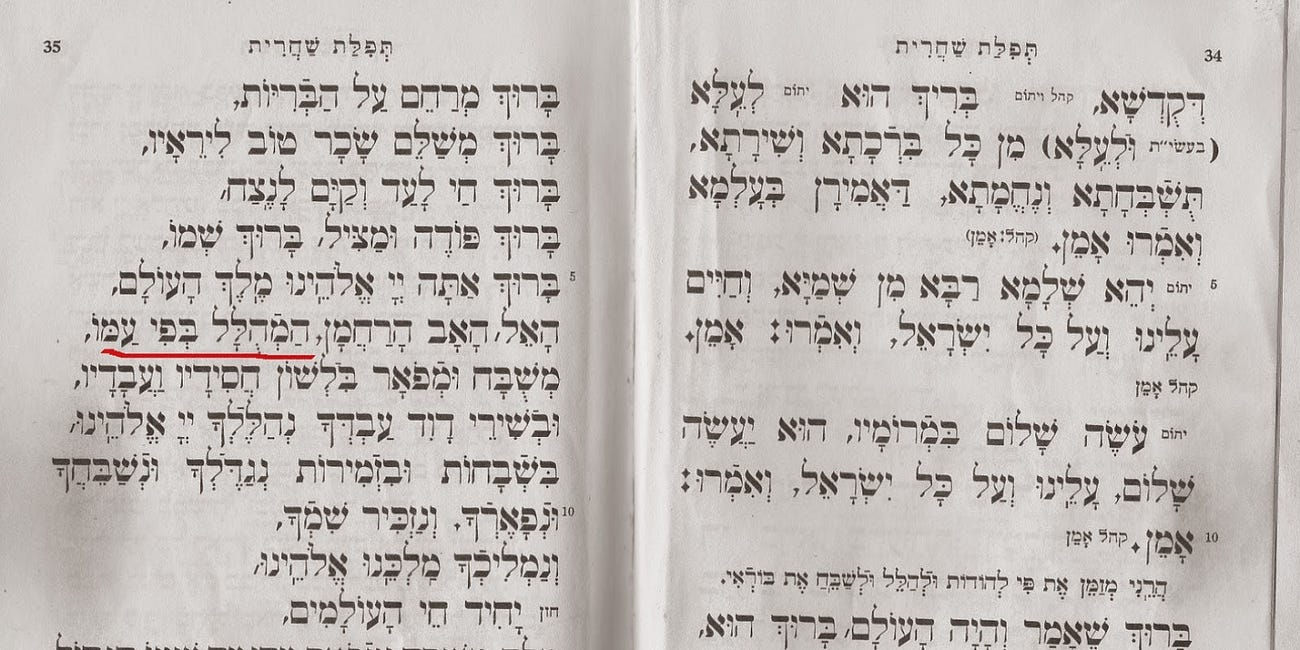 תְּפִלַּת שַׁחֲרִית 34
דְּקֻדְשָׁא, קהל ויתום בְּרִיךְ הוּא יתום לְעֵלָּא
(בעשי״ת וּלְעֵלָּא) מִן כָּל בִּרְכָתָא וְשִׁירָתָא,
תֻּשְׁבְּחָתָא וְנֶחֱמָתָא, דַּאֲמִירָן בְּעָלְמָא
וְאִמְרוּ אָמֵן. (קהל: אָמֵן)
5 יתום יְהֵא שְׁלָמָא רַבָּא מִן שְׁמַיָּא, וְחַיִּים
עָלֵינוּ וְעַל כָּל יִשְׂרָאֵל, וְאִמְרוּ: אָמֵן.
קהל אָמֵן
יתום עֹשֶׂה שָׁלוֹם בִּמְרוֹמָיו, הוּא יַעֲשֶׂה
שָׁלוֹם, עָלֵינוּ וְעַל כָּל יִשְׂרָאֵל, וְאִמְרוּ:
10 אָמֵן. קהל אָמֵן
הֲרֵנִי מְזַמֵּן אֶת פִּי לְהוֹדוֹת וּלְהַלֵּל וּלְשַׁבֵּחַ אֶת בּוֹרְאִי.
בָּרוּךְ שֶׁאָמַר וְהָיָה הָעוֹלָם, בָּרוּךְ הוּא,
תְּפִלַּת שַׁחֲרִית 35
בָּרוּךְ מְרַחֵם עַל הַבְּרִיּוֹת,
בָּרוּךְ מְשַׁלֵּם שָׂכָר טוֹב לִירֵאָיו,
בָּרוּךְ חַי לָעַד וְקַיָּם לָנֶצַח,
בָּרוּךְ פּוֹדֶה וּמַצִּיל, בָּרוּךְ שְׁמוֹ,
5 בָּרוּךְ אַתָּה יְיָ אֱלֹהֵינוּ מֶלֶךְ הָעוֹלָם,
הָאֵל, הָאָב הָרַחֲמָן, הַמְהֻלָּל בְּפִי עַמּוֹ,
מְשֻׁבָּח וּמְפֹאָר בִּלְשׁוֹן חֲסִידָיו וַעֲבָדָיו,
וּבְשִׁירֵי דָוִד עַבְדְּךָ נְהַלֶּלְךָ יְיָ אֱלֹהֵינוּ,
בִּשְׁבָחוֹת וּבִזְמִירוֹת נְגַדֶּלְךָ וּנְשַׁבֵּחֲךָ
10 וּנְפָאֶרְךָ. וְנַזְכִּיר שִׁמְךָ,
וְנַמְלִיכְךָ מַלְכֵּנוּ אֱלֹהֵינוּ,
חזן יָחִיד חֵי הָעוֹלָמִים,